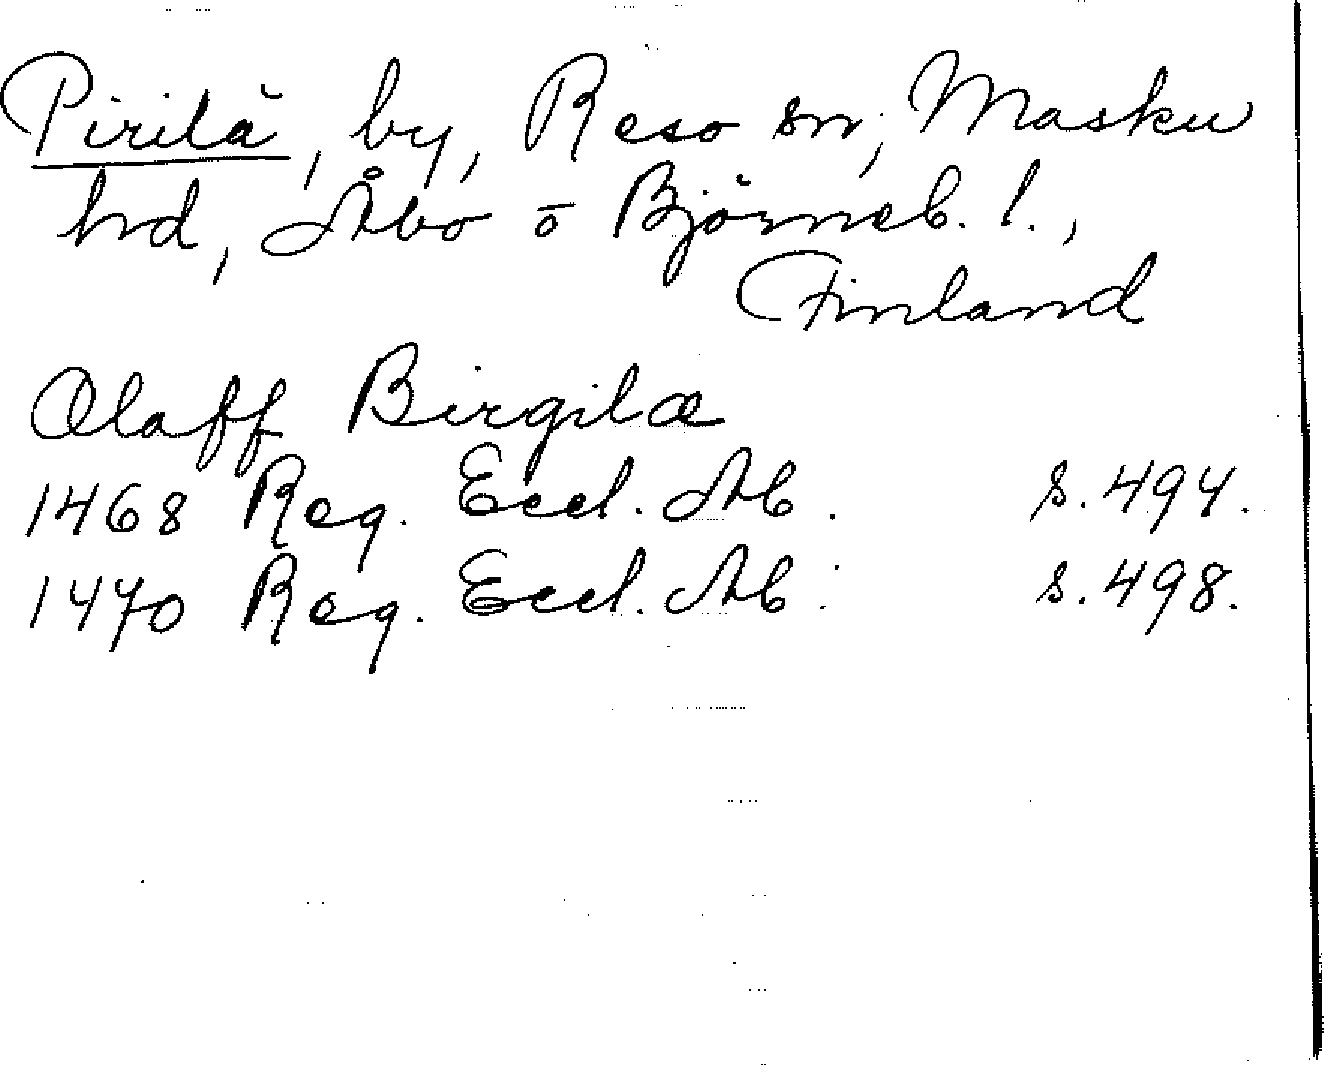 Pirilä, by, Reso sn, Masku
hd, Åbo o Björneb. l.,
Finland
Olaff Birgilæ
1468 Reg. Eccl. Ab. s. 494.
1470 Reg. Eccl. Ab. s. 498.